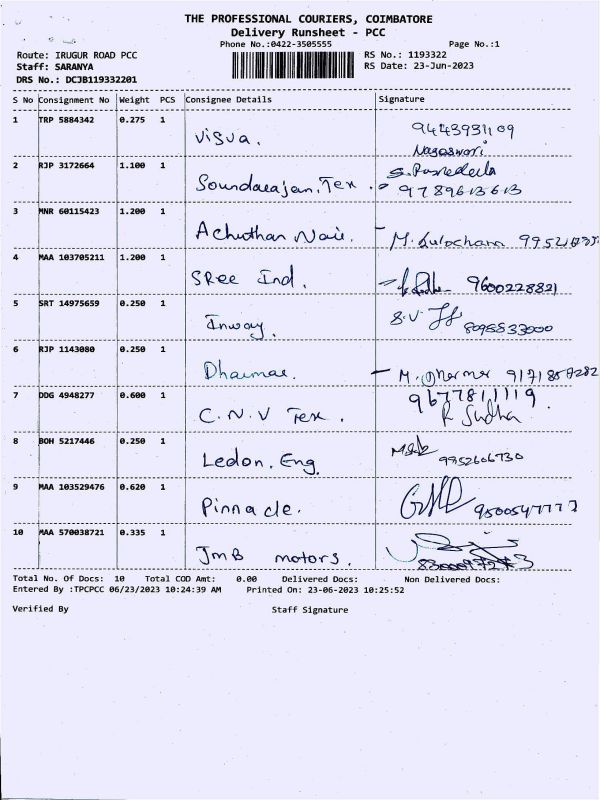 THE PROFESSIONAL COURIERS, COIMBATORE
Delivery Runsheet - PCC
Phone No.:0422-3505555 Page No.:1
Route: IRUGUR ROAD PCC RS No.: 1193322
Staff: SARANYA RS Date: 23-Jun-2023
DRS No.: DCJB119332201
S No Consignment No Weight PCS Consignee Details Signature
1 TRP 5884342 0.275 1 Visva. 9443931109
Nagaswori
2 RJP 3172664 1.100 1 Soundarajan. Tex. 9789613613
3 MNR 60115423 1.200 1 Achuthan Nair. M. Sulochana
4 MAA 103705211 1.200 1 SRee Ind. 9600228821
5 SRT 14975659 0.250 1 Inway. S.V 8095833000
6 RJP 1143080 0.250 1 Dharmar. M. Dharmar 9171857282
7 DDG 4948277 0.600 1 C.N.V Tex. 9677811119.
R Sudha
8 BOH 5217446 0.250 1 Ledon. Eng. 9952606730
9 MAA 103529476 0.620 1 Pinnacle. 9500547777
10 MAA 570038721 0.335 1 JMB motors.
Total No. Of Docs: 10 Total COD Amt: 0.00 Delivered Docs: Non Delivered Docs:
Entered By :TPCPCC 06/23/2023 10:24:39 AM Printed On: 23-06-2023 10:25:52
Verified By Staff Signature